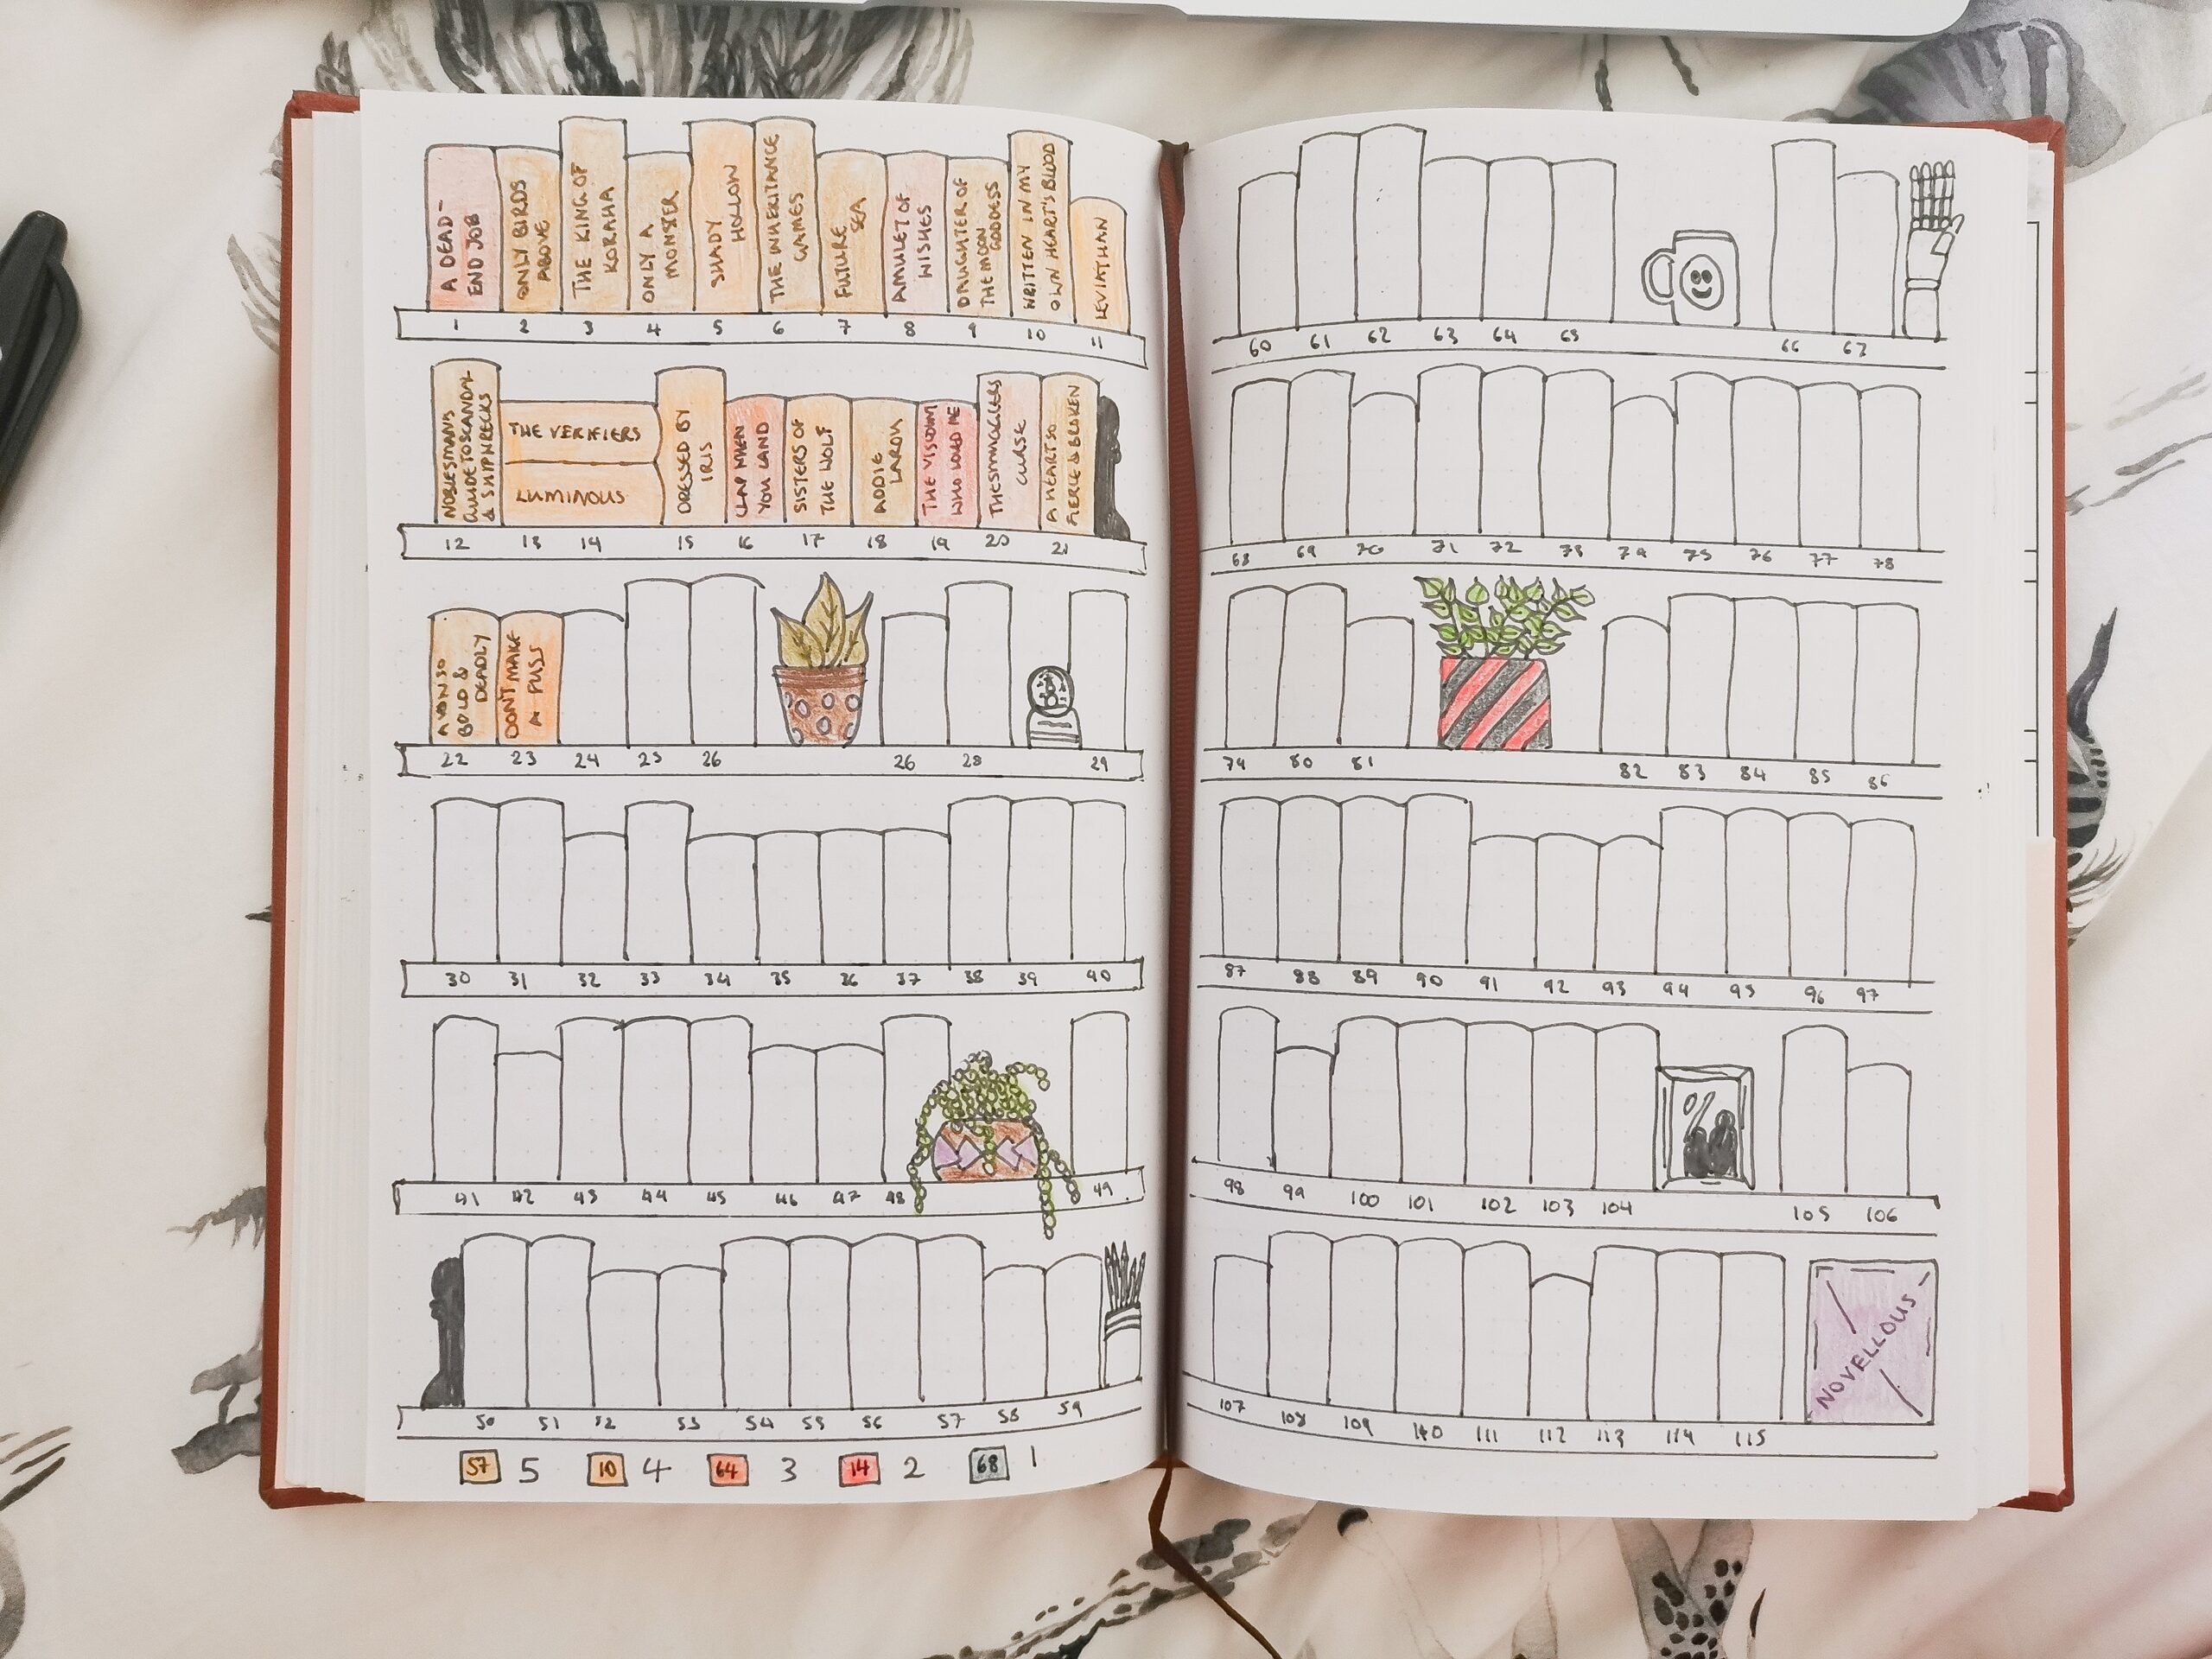 A DEAD-
END JOB
ONLY BIRDS
ABOVE
THE KING OF
KORAHA
ONLY A
MONSTER
SHADY
HOLLOW
THE INHERITANCE
GAMES
FUTURE
SEA
AMULET OF
WISHES
DAUGHTER OF
THE MOON
GODDES
WRITTEN IN MY
OWN HEART'S BLOOD
LEVIATHAN
1 2 3 4 5 6 7 8 9 10 11
NOBLESMANS
GUIDE TO SCANDAL
& SHIPWRECKS
THE VERIFIERS
LUMINOUS
DRESSED BY
IRIS
CLAP WHEN
YOU LAND
SISTERS OF
THE WOLF
ADDIE
LAROU
THE VISCOUNT
WHO LOVED ME
THE SMUGGLERS
CURSE
A HEART SO
FIERCE & BROKEN
12 13 14 15 16 17 18 19 20 21
A VOW SO
BOLD &
DEADLY
DON'T MAKE
A FUSS
22 23 24 25 26 26 28 29
30 31 32 33 34 35 36 37 38 39 40
41 42 43 44 45 46 47 48 49
50 51 52 53 54 55 56 57 58 59
57 5 10 4 64 3 14 2 68 1
60 61 62 63 64 65 66 67
68 69 70 71 72 73 74 75 76 77 78
79 80 81 82 83 84 85 86
87 88 89 90 91 92 93 94 95 96 97
98 99 100 101 102 103 104 105 106
NOVELLOUS
107 108 109 110 111 112 113 114 115